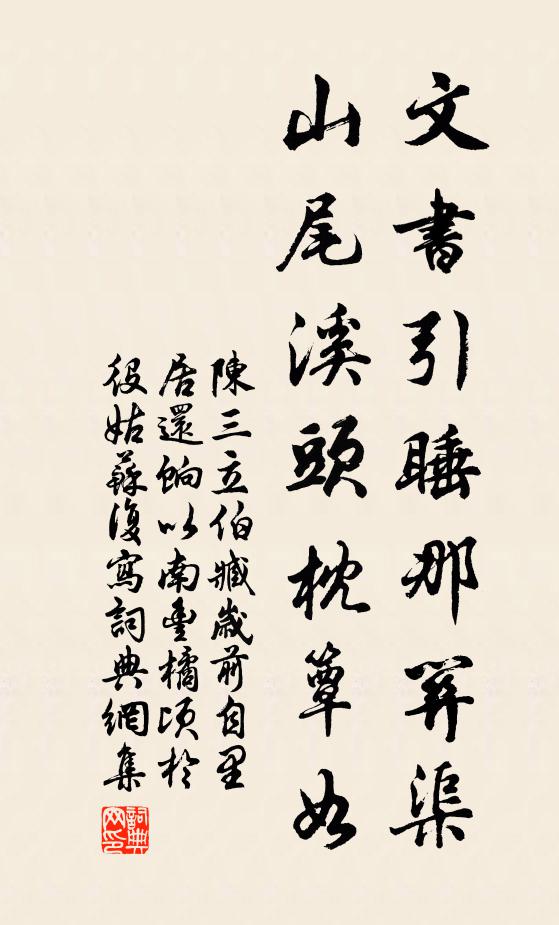 文書引睡那羿渠
山尾溪頭枕簟如
陳三立伯臧歲前自里
居還餉以南豐橘頃於
役姑蘇復寫詞典網集
詞典网印